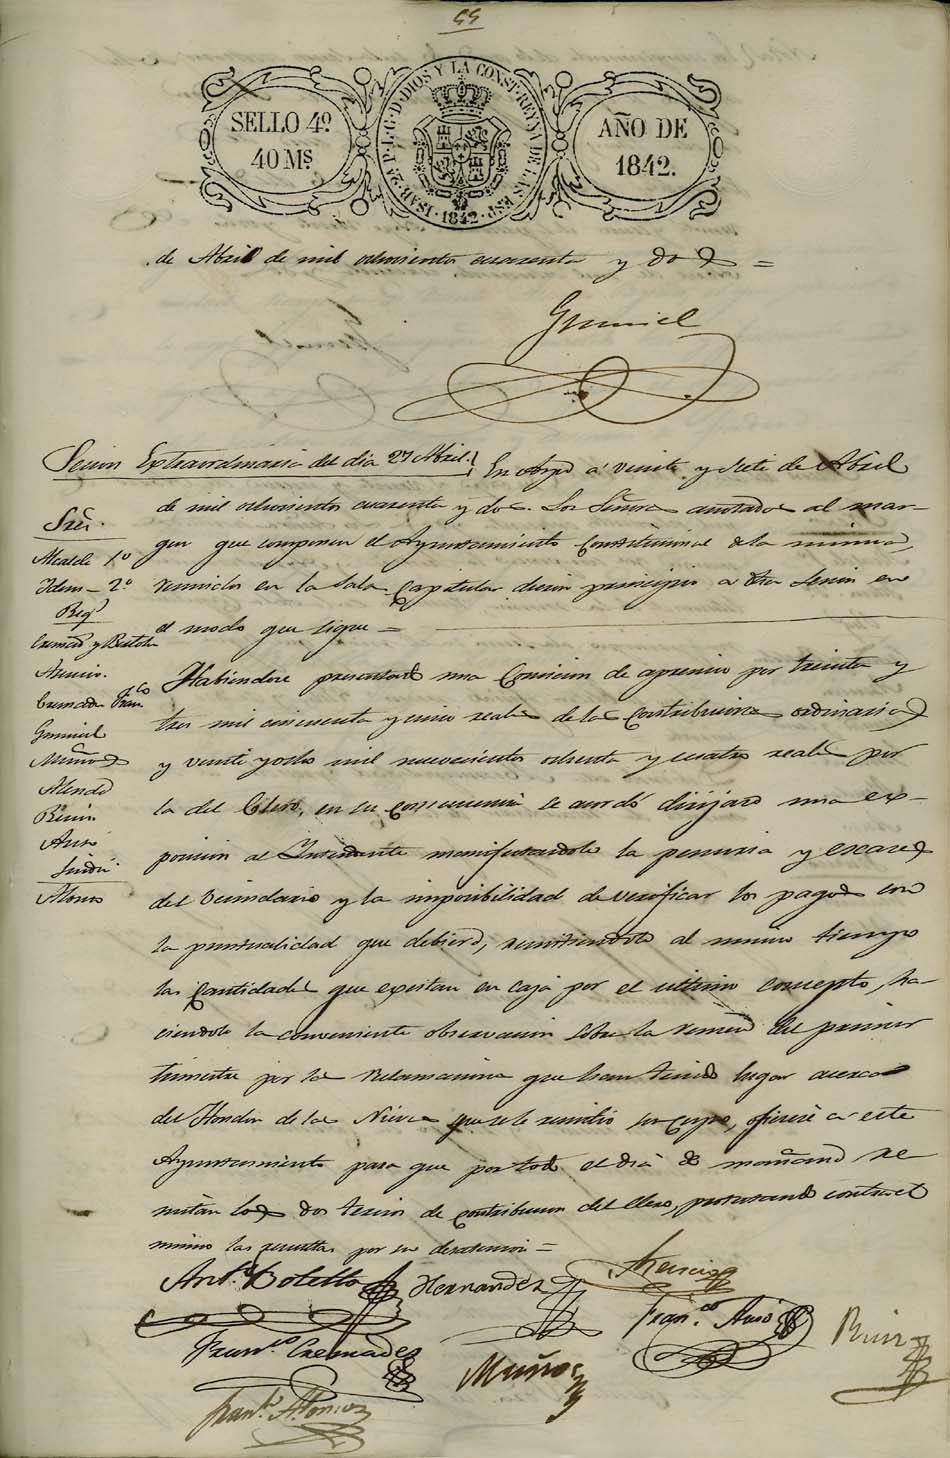 55
SELLO 4º
40 MS
ISAB. 2ª P. L. G. D. DIOS Y LA CONST. REYNA DE LAS ESP.
1842
AÑO DE
1842.
de Abril de mil ochocientos cuarenta y dos =
Gumiel
Sesion Extraordinaria del dia 27 Abril.
En á veinte y siete de Abril
de mil ochocientos cuarenta y dos. Los Señores anotados al mar-
gen que componen el Ayuntamiento Constitucional de la misma,
reunidos en la Sala Capitular dieron principio a esta Sesion en
el modo que sigue =
Sres.
Alcalde 1º
Idem - 2º
Reg.
Cremads y
Asencio.
Cremades Franco
Gumiel
Muños
Ruiz
Auso
Sindic
Alonso
Habiendose presentado una Comision de apremio por treinta y
tres mil cincuenta y cinco reales de las Contribuciones ordinarias
y veinte y ocho mil nuevecientos ochenta y cuatro reales por
la del Clero, en su consecuencia se acordó dirijase una ex-
posicion al Intendente manifestandole la penuria y escases
del vecindario y la imposibilidad de verificar los pagos con
la puntualidad que debiera, remitiendole al mismo tiempo
las Cantidades que existan en caja por el ultimo concepto, ha-
ciendole la conveniente observacion sobre la del primer
trimestre por las reclamaciones que han tenido lugar acerca
del de las que se le remitió, oficiese a este
Ayuntamiento para que por todo el dia de mañana re-
mitan los dos tercios de contribucion del clero, protestando contra el
mismo las resultas por su desatencion =
Anto. Botella
Hernandez
Asencio
Franco. Cremades
Muños
Franco. Auso
Ruiz
Franco. Alonso